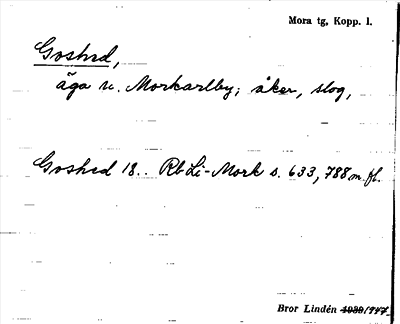 Mora tg, Kopp. l.
Goshed,
äga u. Morkarlby; åker, slog,
Goshed 18.. Rb Li-Mork s. 633, 788 m. fl.
Bror Lindén 1939/1947